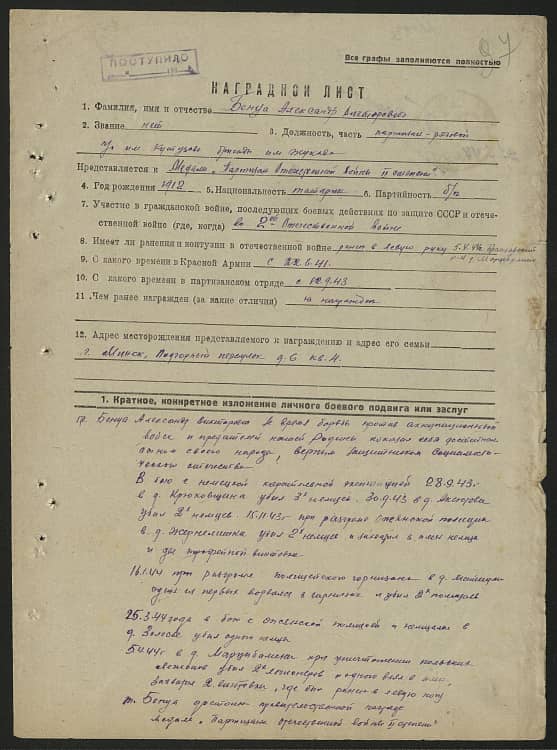 97
ПОСТУПИЛО
Все графы заполняются полностью
НАГРАДНОЙ ЛИСТ
1. Фамилия, имя и отчество Бенуа Александр Викторович
2. Звание нет 3. Должность, часть партизан-рядовой
им Кутузова бригады им Жукова
Представляется к Медали "Партизан Отечественной войны II степени"
4. Год рождения 1912 5. Национальность татарин 6. Партийность б/п
7. Участие в гражданской войне, последующих боевых действиях по защите СССР и отече-
ственной войне (где, когда) во 2ой Отечественной войне
8. Имеет ли ранения и контузии в отечественной войне ранен в левую руку 5.4.44
9. С какого времени в Красной Армии с 22.6.41.
10. С какого времени в партизанском отряде с 12.9.43
11. Чем ранее награжден (за какие отличия) не награжден
12. Адрес месторождения представляемого к награждению и адрес его семьи
г. Минск, Подгорный переулок д.6 кв.4.
1. Краткое, конкретное изложение личного боевого подвига или заслуг
Бенуа Александр Викторович за время борьбы против оккупационных
войск и предателей нашей Родины показал себя достойным
сыном своего народа, верным защитником социалисти-
ческого отечества.
В бою с немецкой карательной экспедицией 28.9.43г
в д. Крюковщина убил 3х немцев. 30.9.43 в д.
убил 2х немцев. 15.11.43г при разгроме полиции
в д. убил 2х немцев и захватил в плен немца
и две винтовки
16.1.44 при разгроме полицейского гарнизона в д.
один из первых ворвался в гарнизон и убил 2х полицаев
25.3.44 года в бою с полицией и немцами в
д. убил одного немца
5.4.44г в д. при уничтожении польских
убил 2х легионеров и одного взял в плен,
захватил 2 винтовки, где был ранен в левую руку
т. Бенуа достоин правительственной награды
медали "Партизан отечественной войны II степени"